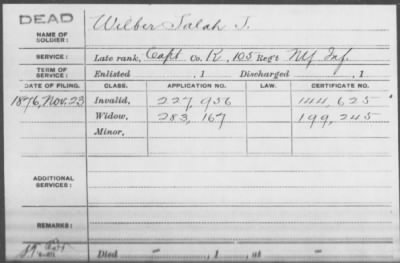 DEAD
NAME OF SOLDIER: Wilber Salah J.
SERVICE: Late rank, Capt Co. K, 105 Reg't NY Inf.
TERM OF SERVICE: Enlisted , 1 Discharged , 1
DATE OF FILING. CLASS. APPLICATION NO. LAW. CERTIFICATE NO.
1876, Nov. 23 Invalid, 227,956 144,625
Widow, 283,167 199,245
Minor,
ADDITIONAL SERVICES:
REMARKS:
Died — , 1 , at —